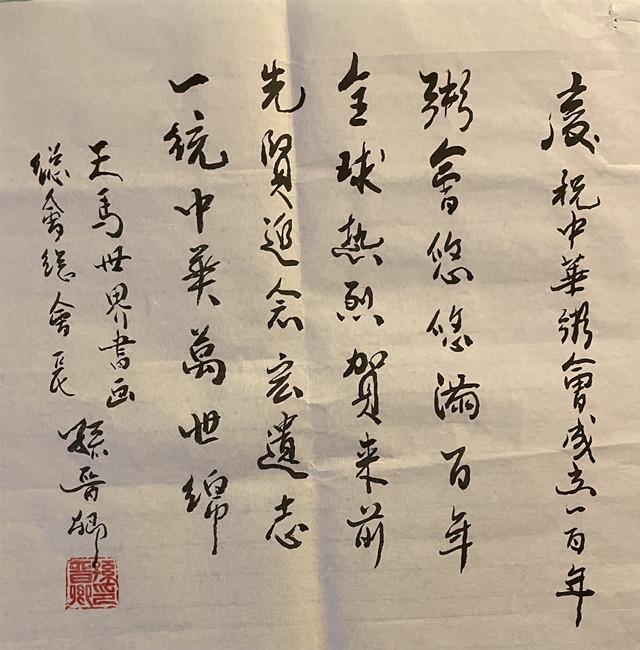 慶祝中華粥會成立一百年
粥會悠悠滿百年
全球熱烈賀來前
先賢追念宏遺志
一統中華萬世綿
天馬世界書画
總會總會長
孫晉卿
孫晉卿印